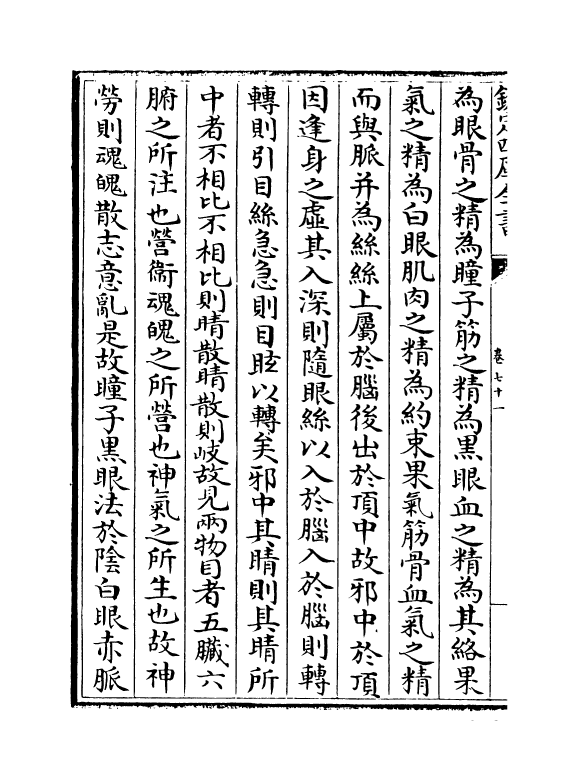 欽定四庫全書
卷七十一
為眼骨之精為瞳子筋之精為黒眼血之精為其絡果
氣之精為白眼肌肉之精為約束果氣筋骨血氣之精
而與脈并為絲絲上屬於腦後出於頂中故邪中於頂
因逢身之虛其入深則隨眼絲以入於腦入於腦則轉
轉則引目絲急急則目眩以轉矣邪中其睛則其睛所
中者不相比不相比則睛散睛散則岐故見兩物目者五臟六
腑之所注也營衞魂魄之所營也神氣之所生也故神
勞則魂魄散志意亂是故瞳子黒眼法於陰白眼赤脈